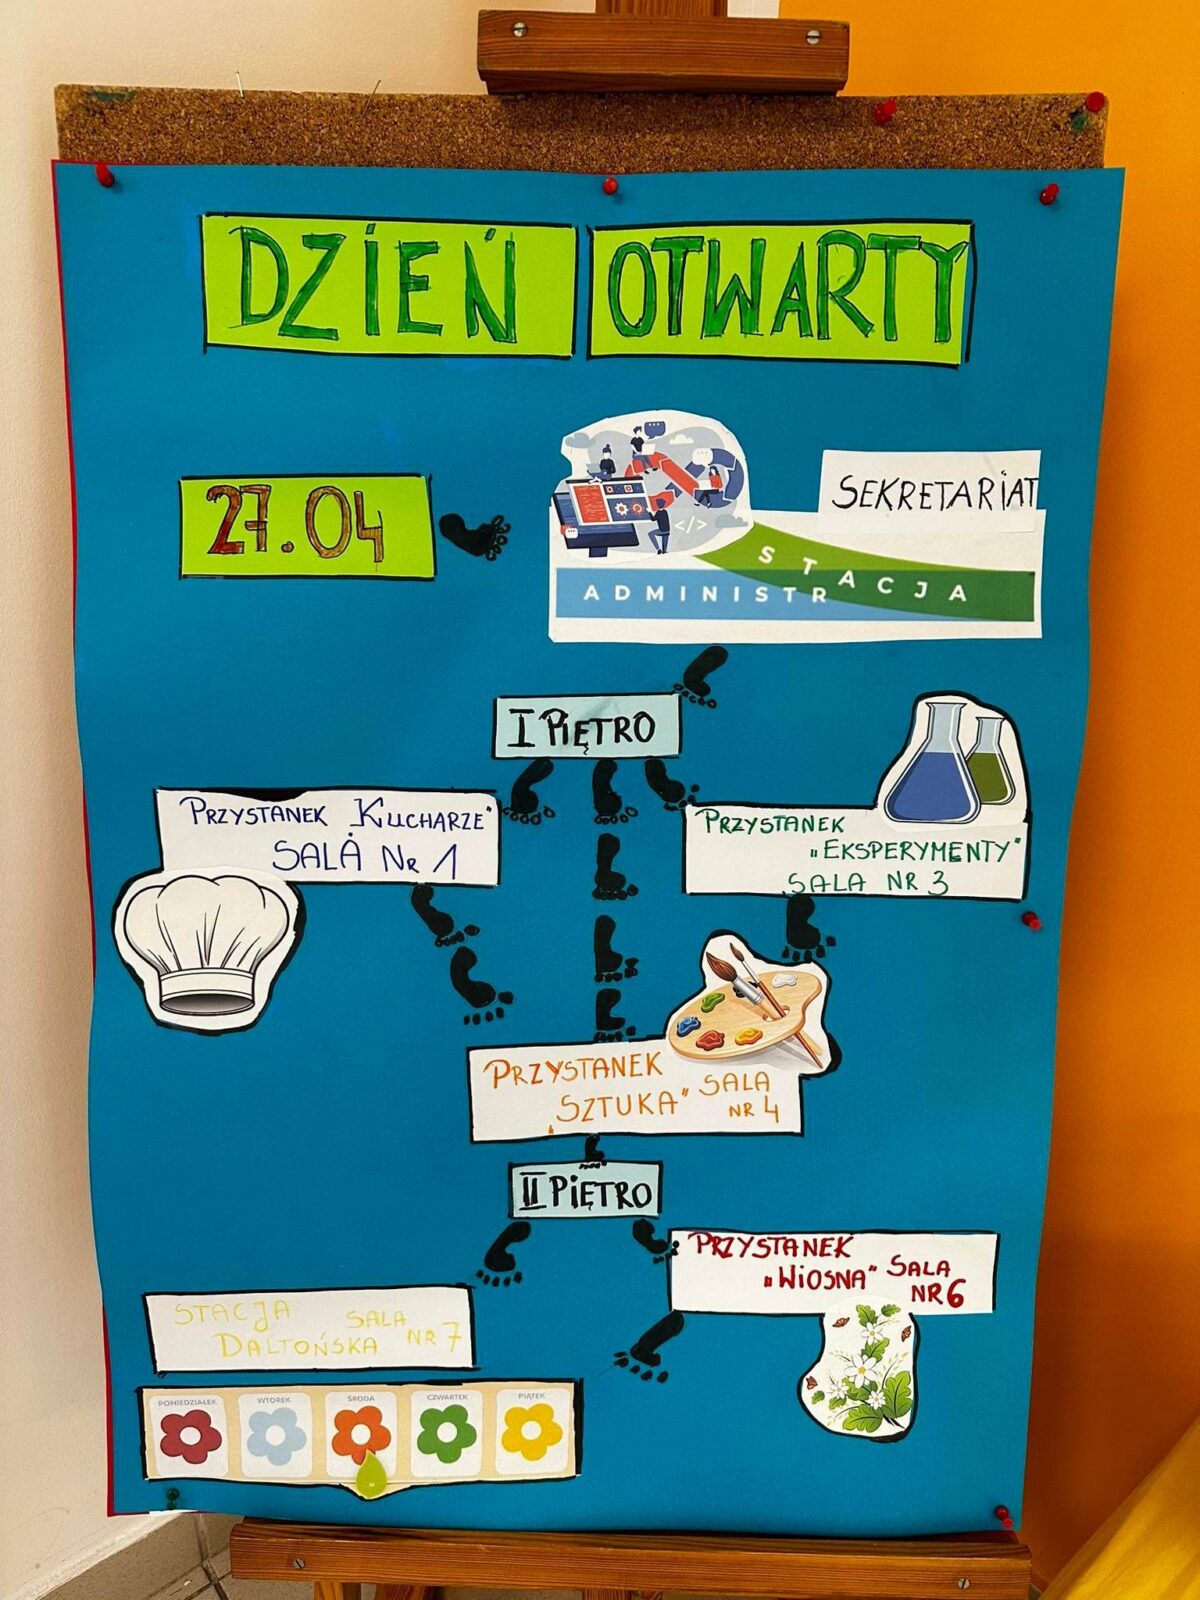 DZIEŃ OTWARTY
27.04
SEKRETARIAT
STACJA
ADMINISTR
</>
I PIĘTRO
PRZYSTANEK KUCHARZE"
SALA NR 1
PRZYSTANEK
„EKSPERYMENTY"
SALA NR 3
PRZYSTANEK SALA
„SZTUKA" NR 4
II PIĘTRO
PRZYSTANEK SALA
„WIOSNA" NR 6
STACJA SALA
DALTOŃSKA NR 7
PONIEDZIAŁEK WTOREK ŚRODA CZWARTEK PIĄTEK